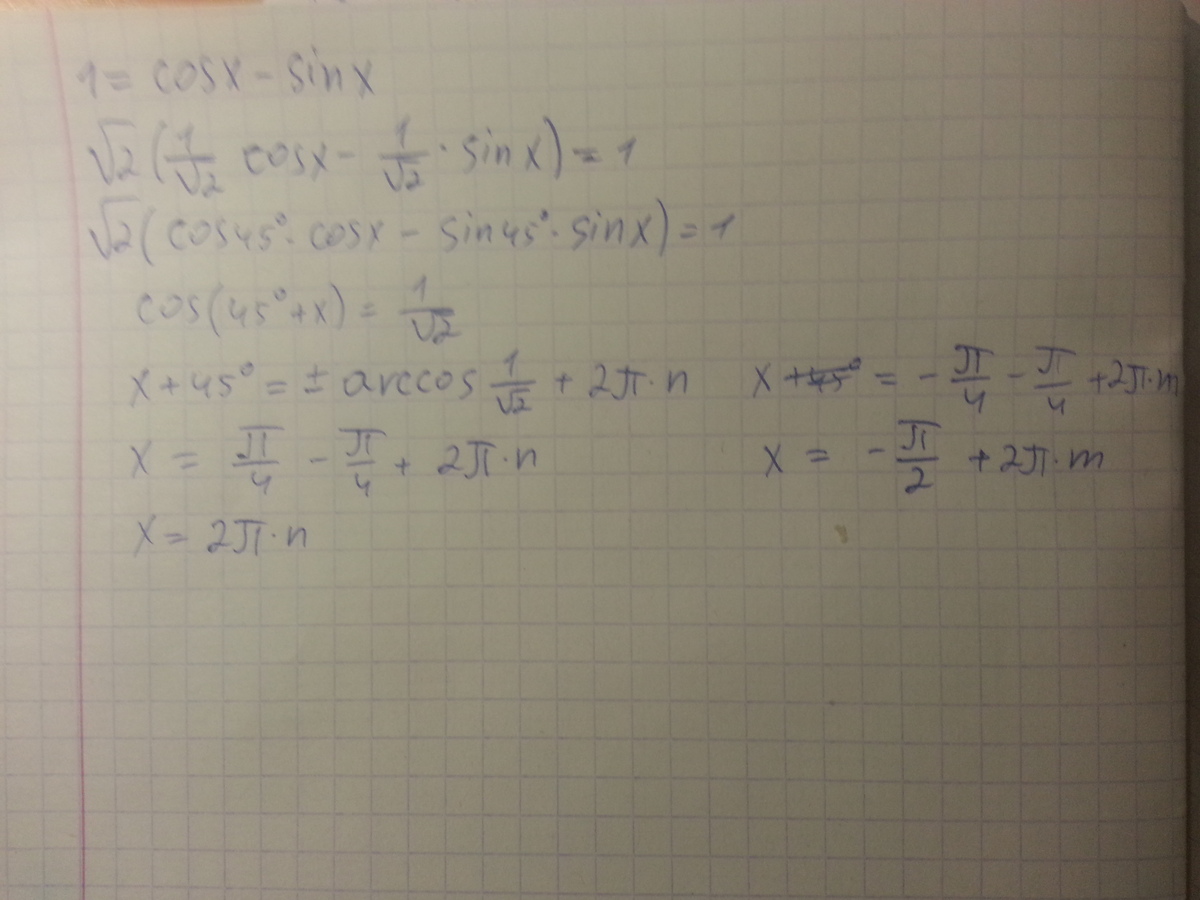 1 = cosx - sinx
√2 (1/√2 cosx - 1/√2 · sinx) = 1
√2 (cos45° · cosx - sin45° · sinx) = 1
cos(45° + x) = 1/√2
x + 45° = ± arccos 1/√2 + 2π · n
x = π/4 - π/4 + 2π · n
x = 2π · n
x +45° = - π/4 - π/4 + 2π · m
x = - π/2 + 2π · m